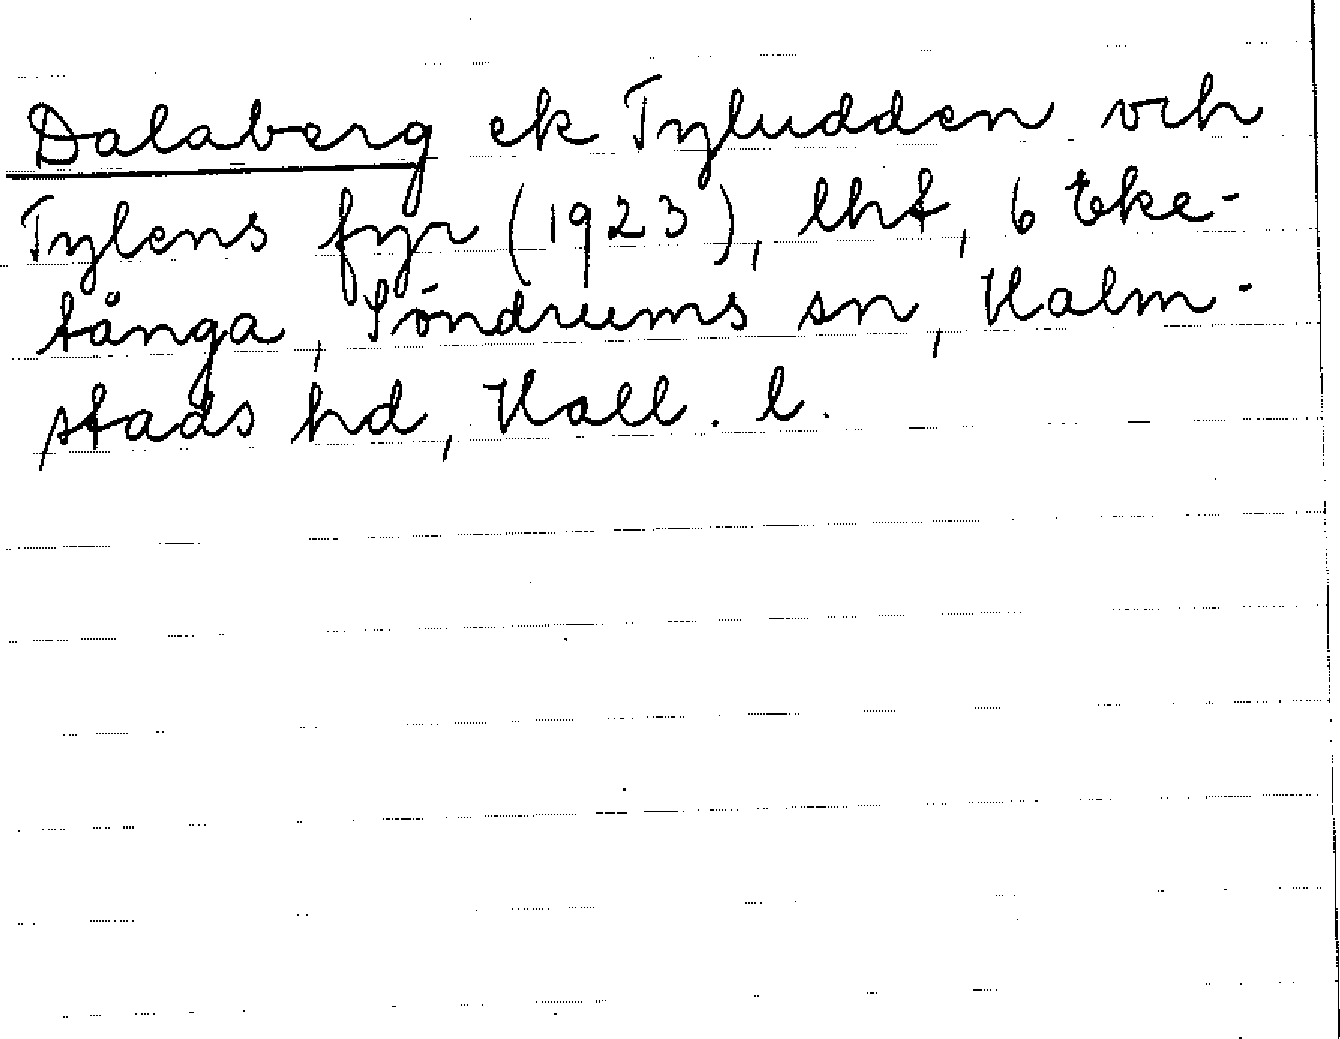 Dalaberg ek Tyludden och
Tylens fyr (1923), lht, 6 Eke-
tånga, Söndrums sn, Halm-
stads hd, Hall. l.